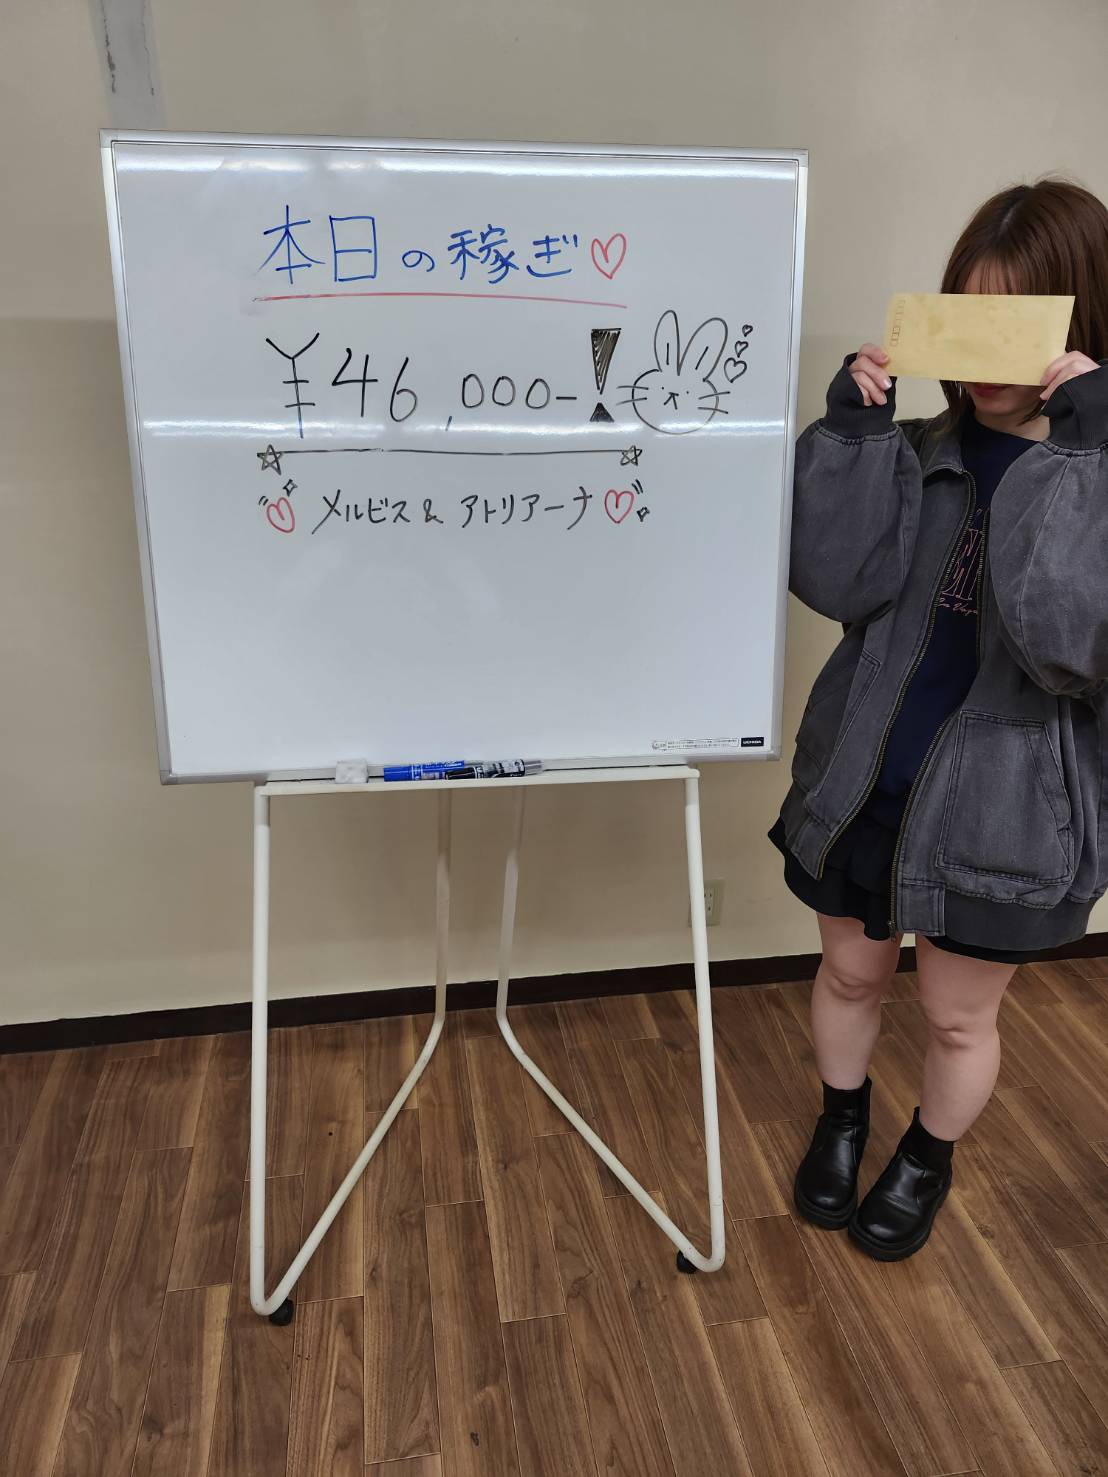 本日の稼ぎ♡
¥46,000-!
メルビス & アトリアーナ
UCHIDA